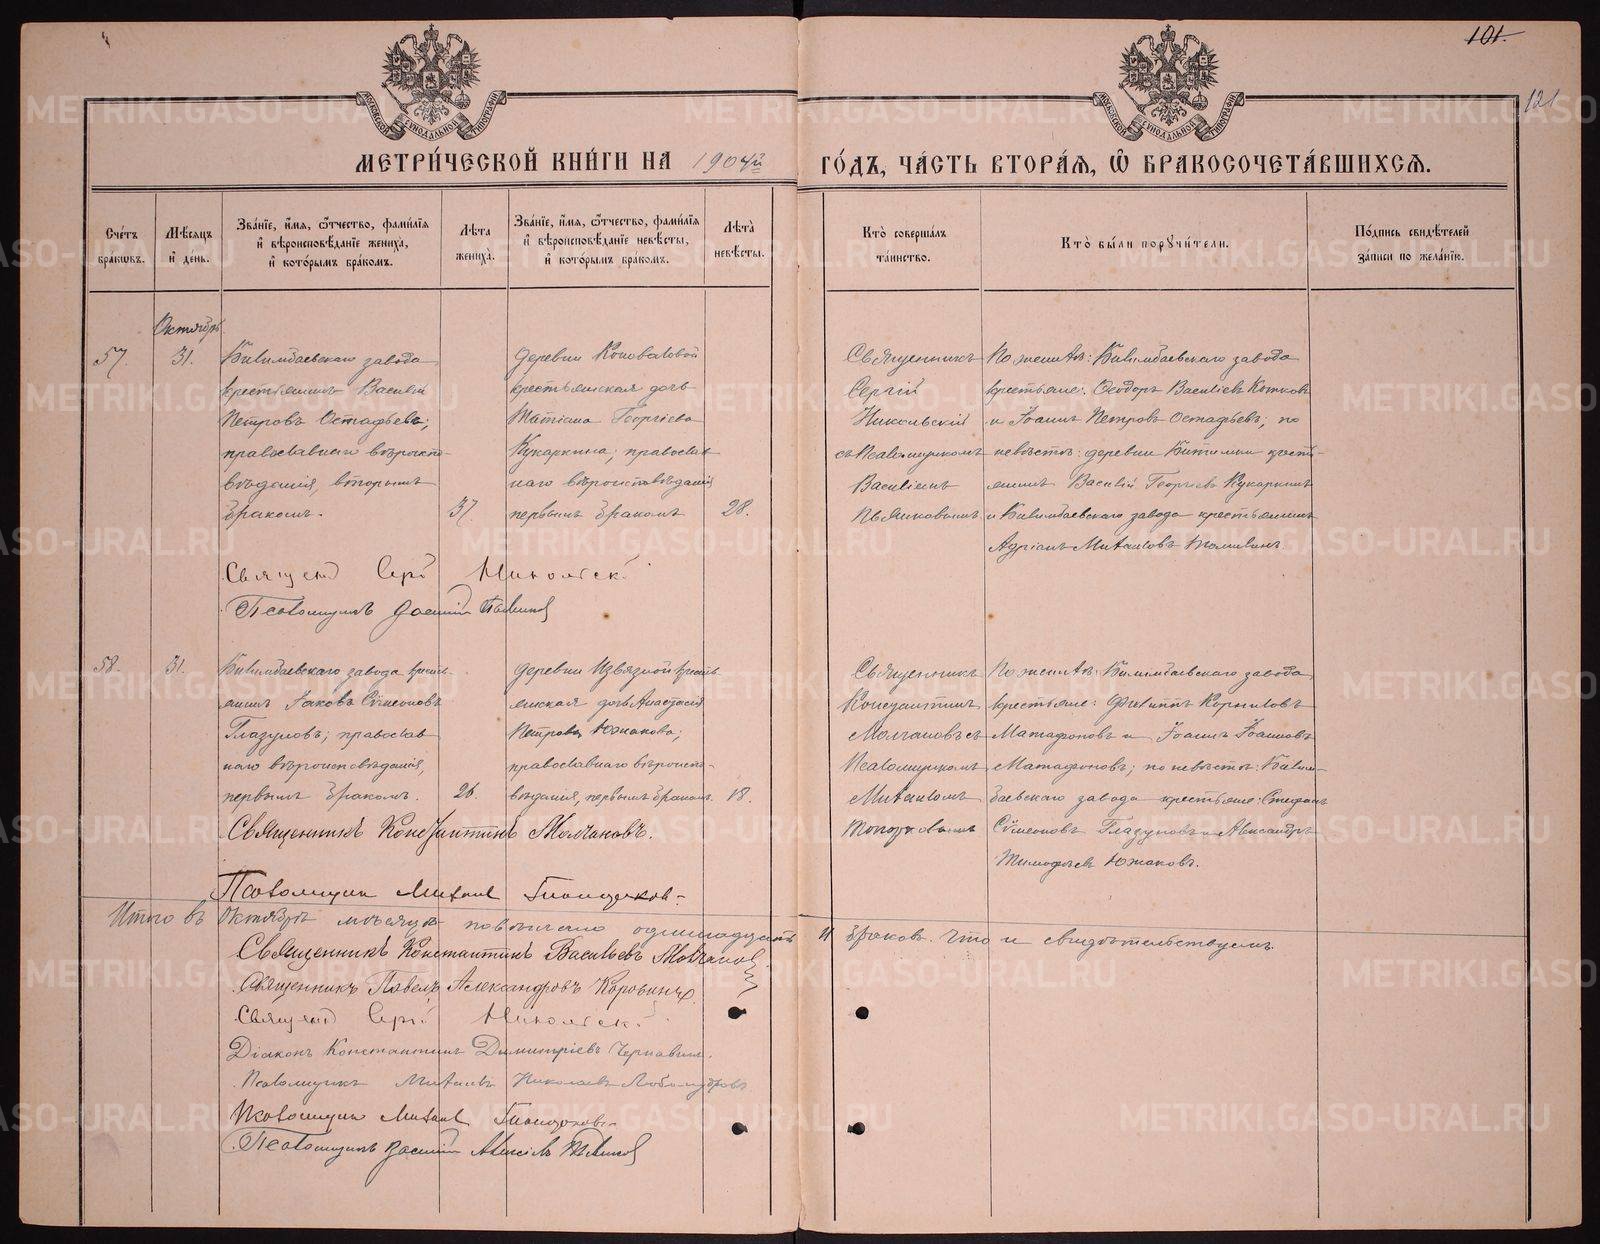 101.
121
МОСКОВСКОЙ СѴНОДАЛЬНОЙ ТИПОГРАФІИ
МОСКОВСКОЙ СѴНОДАЛЬНОЙ ТИПОГРАФІИ
МЕТРИ́ЧЕСКОЙ КНИ́ГИ НА 1904й ГО́ДЪ, ЧА́СТЬ ВТОРА́Ѧ, Ѽ БРАКОСОЧЕТА́ВШИХСѦ.
Сче́тъ бра́кѡвъ.
Мѣ́сѧцъ и҆ де́нь.
Зва́нїе, и҆́мѧ, ѻ҆́тчество, фами́лїѧ и҆ вѣроисповѣ́данїе жениха̀, и҆ кото́рымъ бра́комъ.
Лѣ́та жениха̀.
Зва́нїе, и҆́мѧ, ѻ҆́тчество, фами́лїѧ и҆ вѣроисповѣ́данїе невѣ́сты, и҆ кото́рымъ бра́комъ.
Лѣта̀ невѣ́сты.
Кто̀ соверша́лъ та́инство.
Кто̀ бы́ли порꙋчи́тели.
По́дпись свидѣ́телей за́писи по жела́нїю.
Октябрь
57.
31.
Билимбаевскаго завода
крестьянинъ Василій
Петровъ Остафьевъ;
православнаго вѣроиспо-
вѣданія, вторымъ
бракомъ.
37.
деревни Коноваловой
крестьянская дочь
Татіана Георгіева
Кукаркина, православ
наго вѣроисповѣданія
первымъ бракомъ
28.
Священникъ
Сергій
Никольскій
съ Псаломщикомъ
Василіемъ
Пьянковымъ
По женихѣ: Билимбаевскаго завода
крестьяне: Ѳеодоръ Василіевъ Котковъ
и Іоаннъ Петровъ Остафьевъ; по
невѣстѣ: деревни Битимки кресть-
янинъ Василій Георгіевъ Кукаркинъ
и Билимбаевскаго завода крестьянинъ
Адріанъ Михаиловъ
Священ Серг Никольск
Псаломщикъ Василій Пьянков
58.
31.
Билимбаевскаго завода кресть-
янинъ Іаковъ Сѵмеоновъ
Глазуновъ; православ
наго вѣроисповѣданія,
первымъ бракомъ.
26.
деревни Извязной кресть-
янская дочь Анастасія
Петрова Южакова;
православнаго вѣроиспо-
вѣданія, первымъ бракомъ.
18.
Священникъ
Константинъ
Молчановъ съ
Псаломщикомъ
Михаиломъ
По женихѣ: Билимбаевскаго завода
крестьяне: Филиппъ Корниловъ
Матафоновъ и Іоаннъ Іоанновъ
Матафоновъ; по невѣстѣ: Билим-
баевскаго завода крестьяне: Стефанъ
Сѵмеоновъ Глазуновъ и Александръ
Тимофѣевъ Южаковъ.
Священникъ Константинъ Молчановъ.
Псаломщик Михаил
Итого въ Октябрѣ мѣсяцѣ повѣнчано одиннадцать 11 браковъ. Что и свидѣтельствуемъ.
Священникъ Константинъ Васильевъ Молчанов
Священникъ Павелъ Александровъ Коровинъ.
Священ Серг Никольск
Діаконъ Константинъ Димитріевъ Чернавинъ.
Псаломщикъ Михаилъ Николаевъ Любомудровъ
Псаломщик Михаил
Псаломщикъ Василій Алексіевъ Пьянков
METRIKI.GASO-URAL.RU